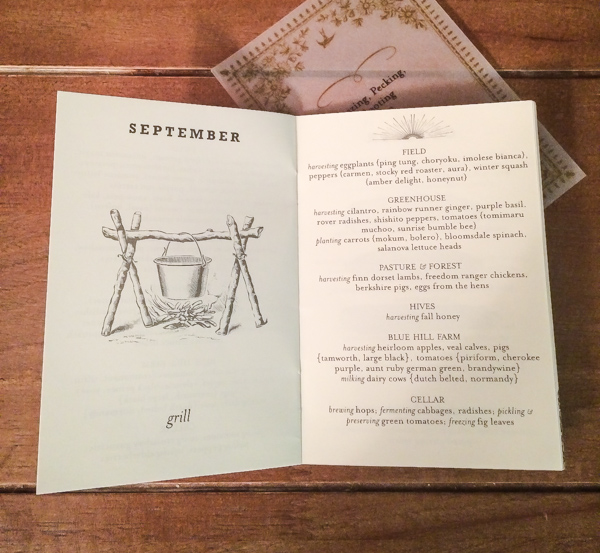 zing, Pecking,
ting
SEPTEMBER
grill
FIELD
harvesting eggplants {ping tung, choryoku, imolese bianca},
peppers {carmen, stocky red roaster, aura}, winter squash
{amber delight, honeynut}
GREENHOUSE
harvesting cilantro, rainbow runner ginger, purple basil,
rover radishes, shishito peppers, tomatoes {tomimaru
muchoo, sunrise bumble bee}
planting carrots {mokum, bolero}, bloomsdale spinach,
salanova lettuce heads
PASTURE & FOREST
harvesting finn dorset lambs, freedom ranger chickens,
berkshire pigs, eggs from the hens
HIVES
harvesting fall honey
BLUE HILL FARM
harvesting heirloom apples, veal calves, pigs
{tamworth, large black}, tomatoes {piriform, cherokee
purple, aunt ruby german green, brandywine}
milking dairy cows {dutch belted, normandy}
CELLAR
brewing hops; fermenting cabbages, radishes; pickling &
preserving green tomatoes; freezing fig leaves